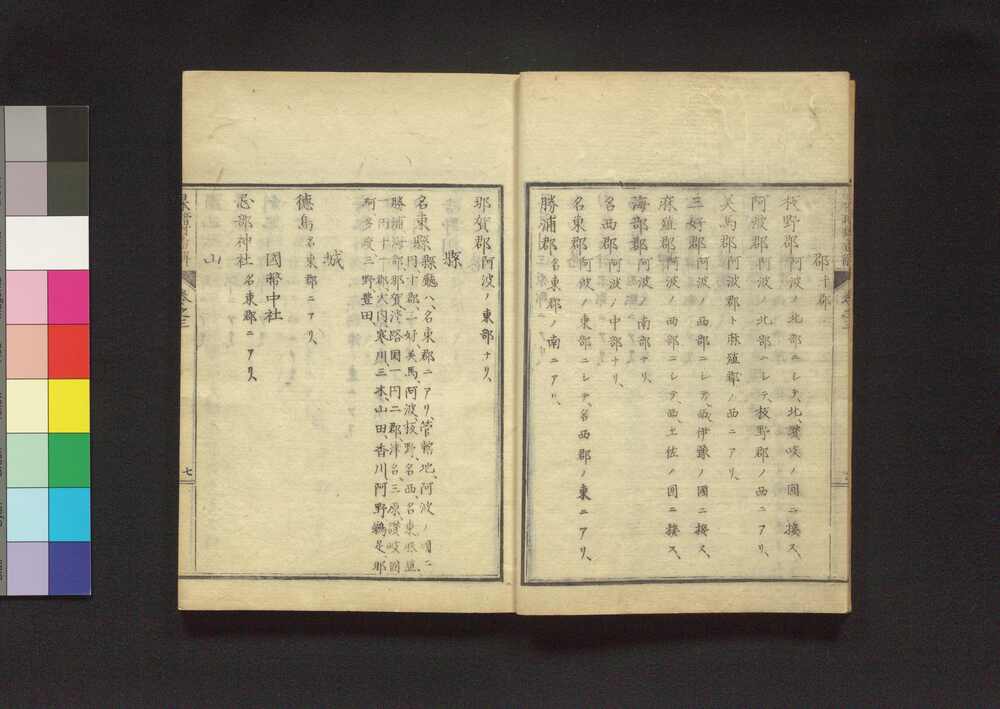 郡十郡
板野郡阿波ノ北部ニシテ、北、讃岐ノ国ニ接ス、
阿波郡阿波ノ北部ニシテ、板野郡ノ西ニアリ、
美馬郡阿波郡ト麻殖郡ノ西ニアリ、
三好郡阿波ノ西部ニシテ、西、伊豫ノ國ニ接ス、
麻殖郡阿波ノ西部ニシテ、西、土佐ノ国ニ接ス、
海部郡阿波ノ南部ナリ、
名西郡阿波ノ中部ナリ、
名東郡阿波ノ東部ニシテ、名西郡ノ東ニアリ、
勝浦郡名東郡ノ南ニアリ、
那賀郡阿波ノ東部ナリ、
縣
名東縣縣廳ハ、名東郡ニアリ、管轄地、阿波ノ国一
円十郡三好、美馬、阿波、板野、名西、名東、麻殖、
勝浦海部、那賀、淡路国一円二郡、津名、三原、讃岐国
一円十一郡大内、寒川、三木、山田、香川、阿野、鵜足、那
阿多度三野豊田、
城
徳島名東郡ニアリ、
國幣中社
忌部神社名東郡ニアリ、
山
卷之三
七